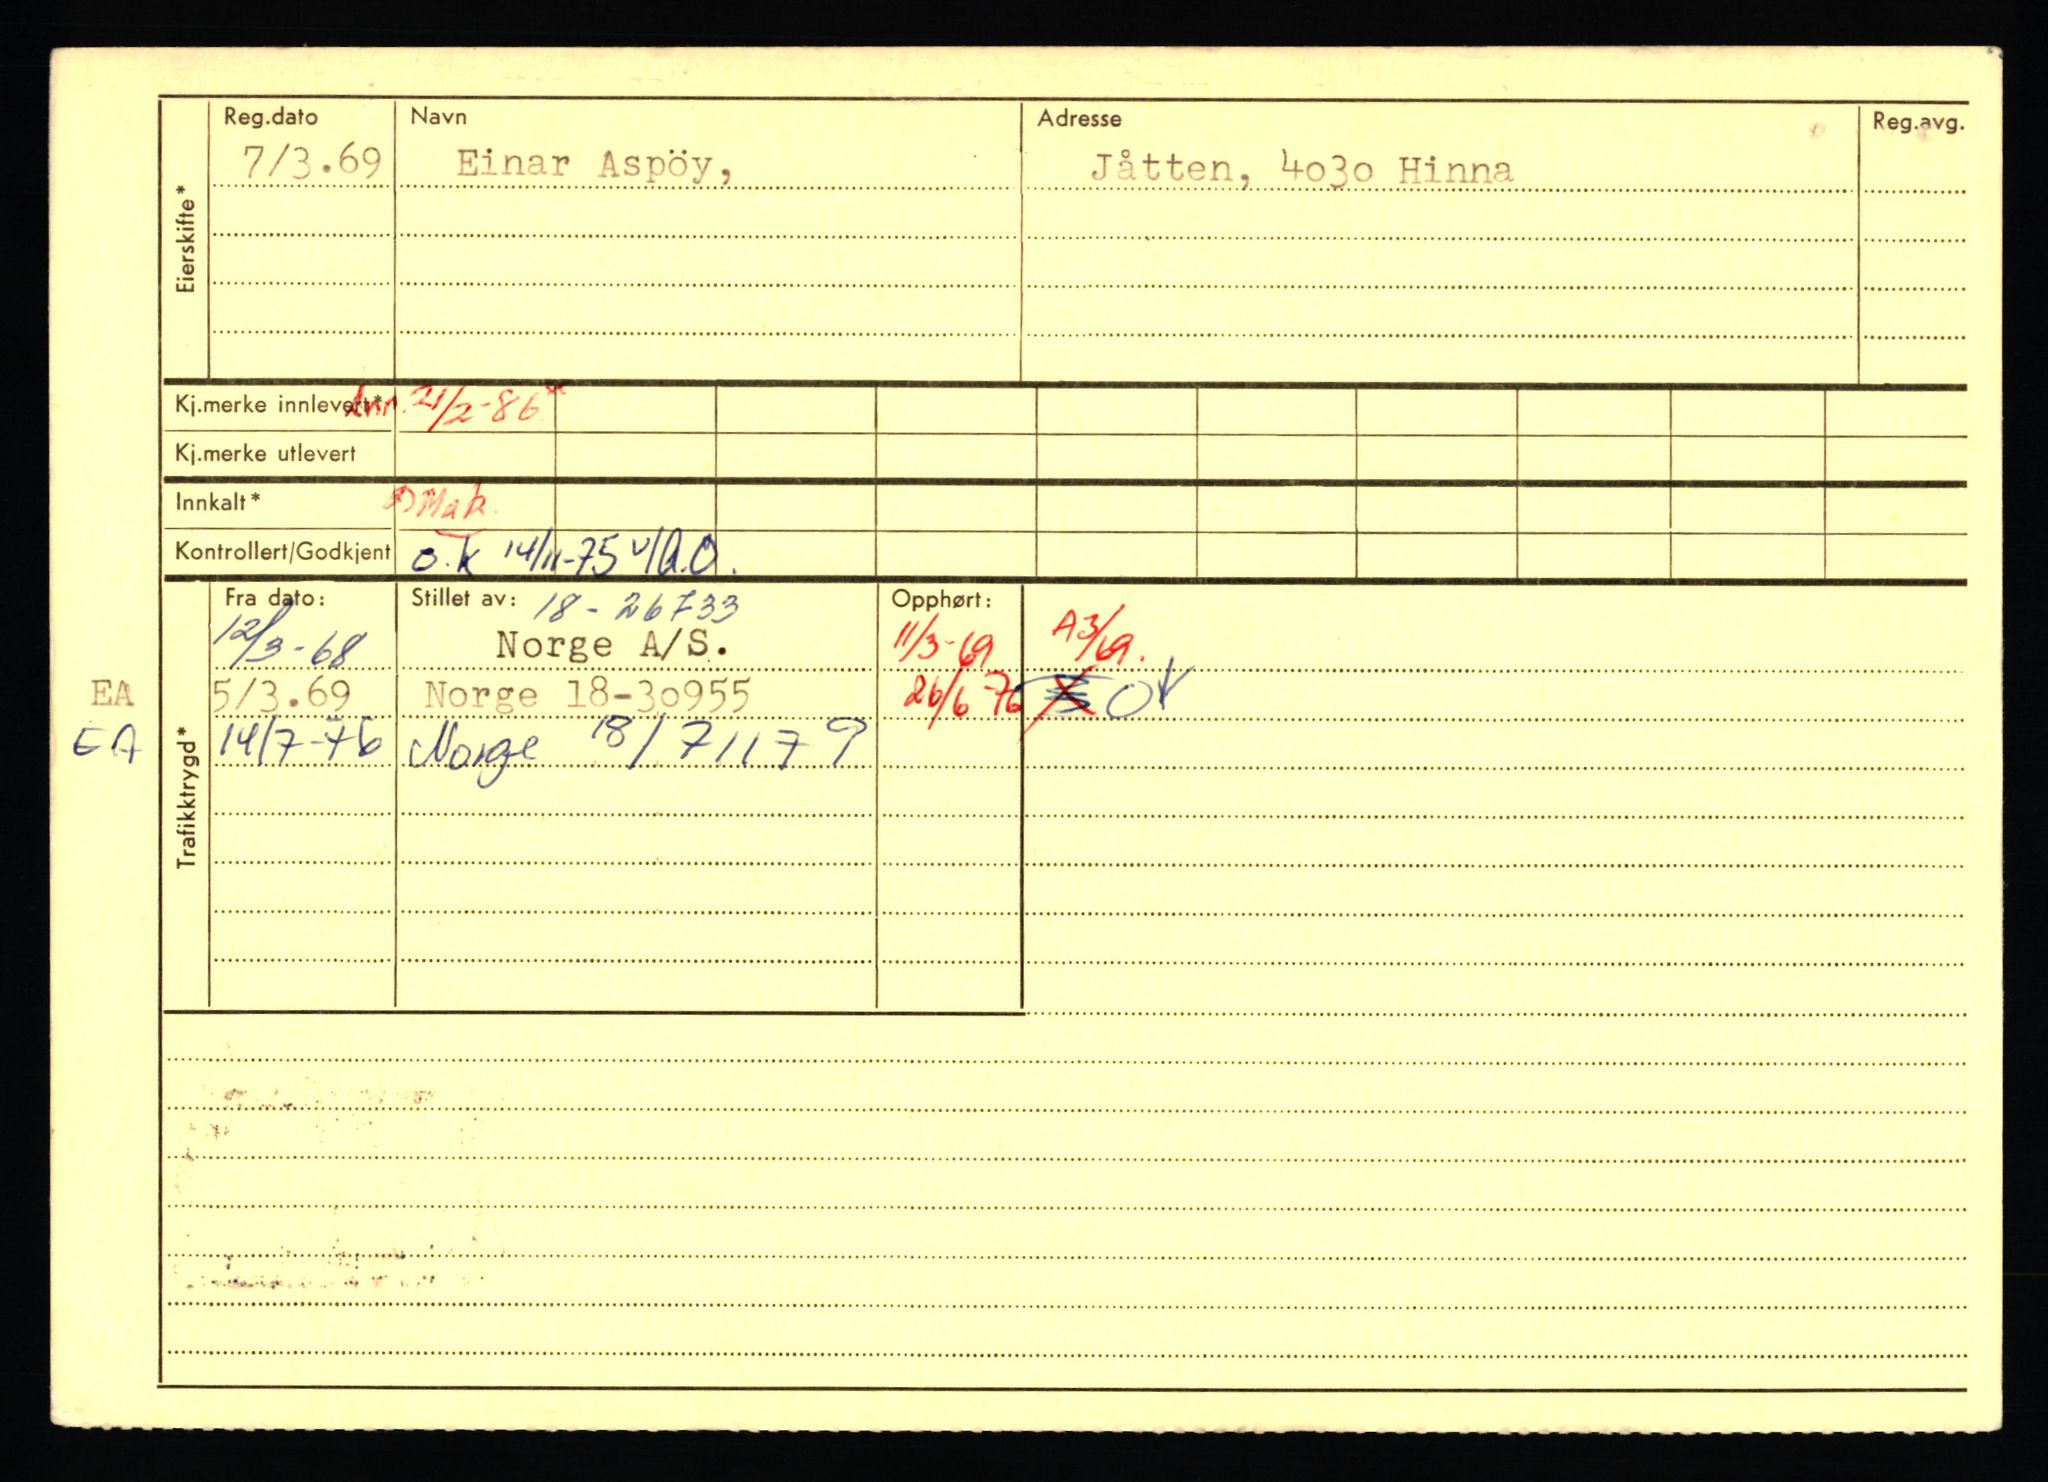 Reg.dato Navn Adresse Reg.avg.
7/3.69 Einar Aspöy, Jåtten, 4030 Hinna
Eierskifte*
Kj.merke innlevert* 21/2-86
Kj.merke utlevert
Innkalt* Mak.
Kontrollert/Godkjent o.k 14/11-75
Fra dato: Stillet av: 18-26733 Opphørt:
12/3-68 Norge A/S. 11/3-69 A3/69.
EA 5/3.69 Norge 18-30955 26/6-76 OK
EA 14/7-76 Norge 18/71179
Trafikktrygd*